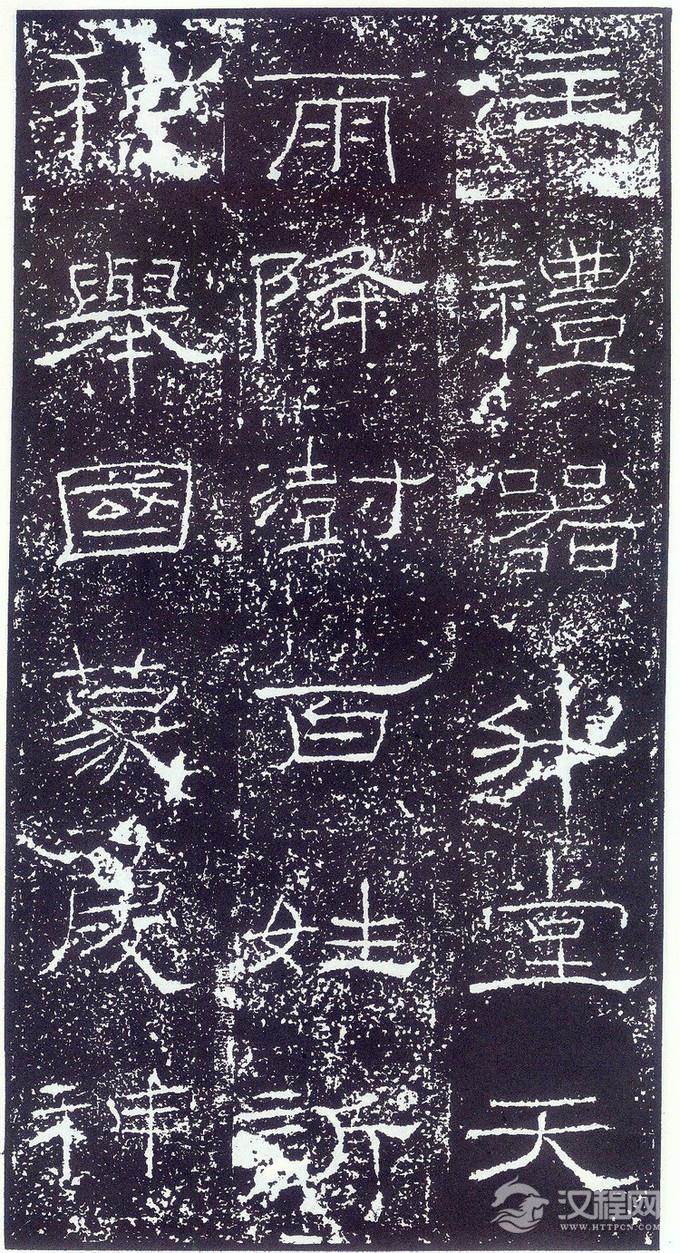 注禮器升堂天
雨降澍百姓訢
和舉國蒙慶神
汉程网
WWW.HTTPCN.COM